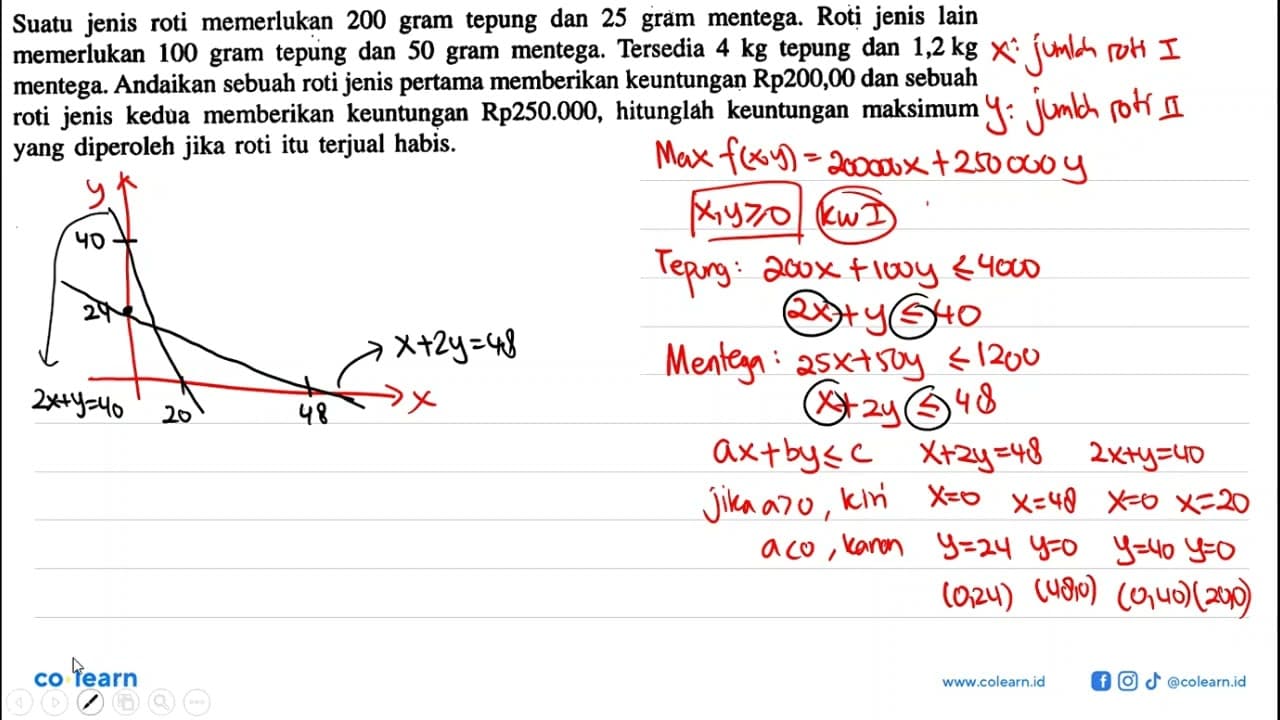 Suatu jenis roti memerlukan 200 gram tepung dan 25 gram mentega. Roti jenis lain
memerlukan 100 gram tepung dan 50 gram mentega. Tersedia 4 kg tepung dan 1,2 kg
mentega. Andaikan sebuah roti jenis pertama memberikan keuntungan Rp200,00 dan sebuah
roti jenis kedua memberikan keuntungan Rp250.000, hitunglah keuntungan maksimum
yang diperoleh jika roti itu terjual habis.
x: jumlah roti I
y: jumlah roti II
Max f(x,y) = 200000x + 250000y
x,y ≥ 0 kw I
Tepung: 200x + 100y ≤ 4000
2x + y ≤ 40
Mentega: 25x + 50y ≤ 1200
x + 2y ≤ 48
ax + by ≤ c x+2y=48 2x+y=40
jika a>0, kiri x=0 x=48 x=0 x=20
a<0, kanan y=24 y=0 y=40 y=0
(0,24) (48,0) (0,40) (20,0)
y
40
24
x+2y=48
2x+y=40
20
48
x
co learn
www.colearn.id
@colearn.id